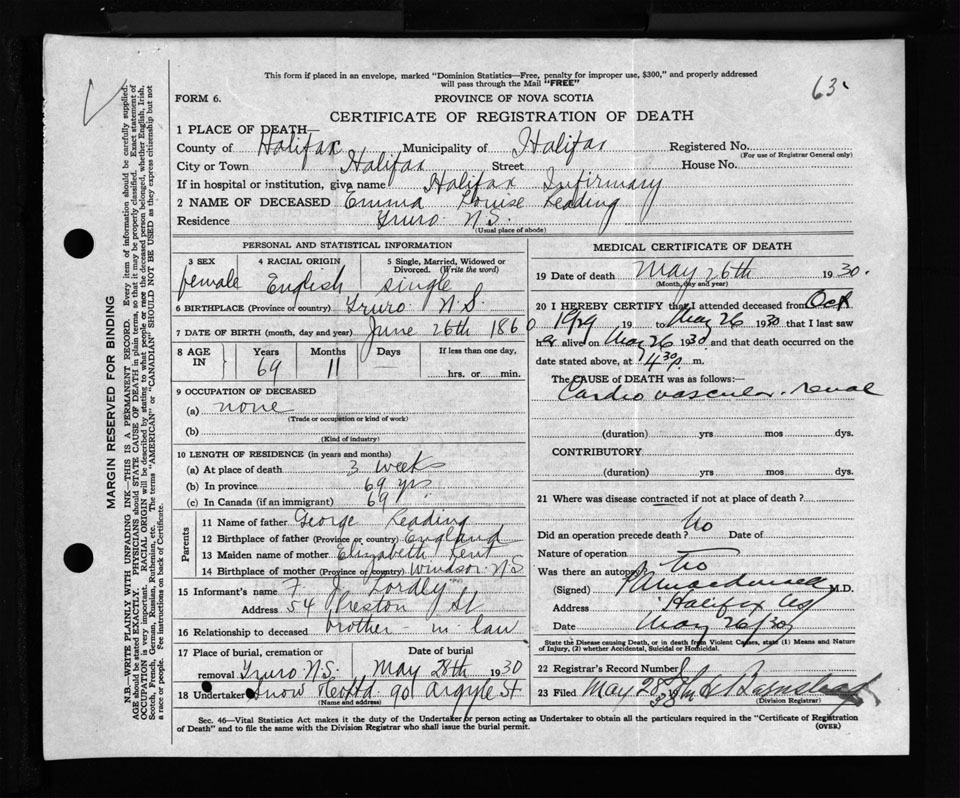 This form if placed in an envelope, marked "Dominion Statistics—Free, penalty for improper use, $300," and properly addressed
will pass through the Mail "FREE"
63
FORM 6.
PROVINCE OF NOVA SCOTIA
CERTIFICATE OF REGISTRATION OF DEATH
1 PLACE OF DEATH—
County of Halifax Municipality of Halifax Registered No.
(For use of Registrar General only)
City or Town Halifax Street House No.
If in hospital or institution, give name Halifax Infirmary
2 NAME OF DECEASED Emma Louise Reading
Residence Truro N.S.
(Usual place of abode)
MARGIN RESERVED FOR BINDING
N.B.—WRITE PLAINLY WITH UNFADING INK—THIS IS A PERMANENT RECORD. Every item of information should be carefully supplied.
AGE should be stated EXACTLY. PHYSICIANS should STATE CAUSE OF DEATH in plain terms, so that it may be properly classified. Exact statement of
OCCUPATION is very important. RACIAL ORIGIN will be described by stating to what people or race the deceased person belonged, whether English, Irish,
Scotch, French, German, Russian, Ruthenian, etc. The terms "AMERICAN" or "CANADIAN" SHOULD NOT BE USED as they express citizenship but not
a race or people. See instructions on back of Certificate.
PERSONAL AND STATISTICAL INFORMATION
3 SEX
female
4 RACIAL ORIGIN
English
5 Single, Married, Widowed or
Divorced. (Write the word)
single
6 BIRTHPLACE (Province or country) Truro N.S.
7 DATE OF BIRTH (month, day and year) June 26th 1860
8 AGE IN
Years Months Days If less than one day,
69 11 hrs. or min.
9 OCCUPATION OF DECEASED
(a) none
(Trade or occupation or kind of work)
(b)
(Kind of industry)
10 LENGTH OF RESIDENCE (in years and months)
(a) At place of death 3 weeks
(b) In province 69 yrs.
(c) In Canada (if an immigrant) 69
Parents
11 Name of father George Reading
12 Birthplace of father (Province or country) England
13 Maiden name of mother Elizabeth Kent
14 Birthplace of mother (Province or country) Windsor N.S
15 Informant's name F. J. Lordly
Address 54 Preston St
16 Relationship to deceased brother-in law
17 Place of burial, cremation or Date of burial
removal Truro N.S. May 28th 1930
18 Undertaker Snow 90 Argyle St
(Name and address)
MEDICAL CERTIFICATE OF DEATH
19 Date of death May 26th 1930.
(Month, day and year)
20 I HEREBY CERTIFY that I attended deceased from Oct
1929 19 to May 26 1930 that I last saw
her alive on May 26 1930 and that death occurred on the
date stated above, at 4.30 p. m.
The CAUSE of DEATH was as follows:
Cardio vascular-renal
(duration) yrs mos dys.
CONTRIBUTORY
(duration) yrs mos dys.
21 Where was disease contracted if not at place of death?
Did an operation precede death? No Date of
Nature of operation
Was there an autopsy No
(Signed) M.D.
Address Halifax NS
Date May 26/30
State the Disease causing Death, or in death from Violent Causes, state (1) Means and Nature
of Injury, (2) whether Accidental, Suicidal or Homicidal.
22 Registrar's Record Number
23 Filed May 28
(Division Registrar)
Sec. 46—Vital Statistics Act makes it the duty of the Undertaker or person acting as Undertaker to obtain all the particulars required in the "Certificate of Registration
of Death" and to file the same with the Division Registrar who shall issue the burial permit.
(OVER)